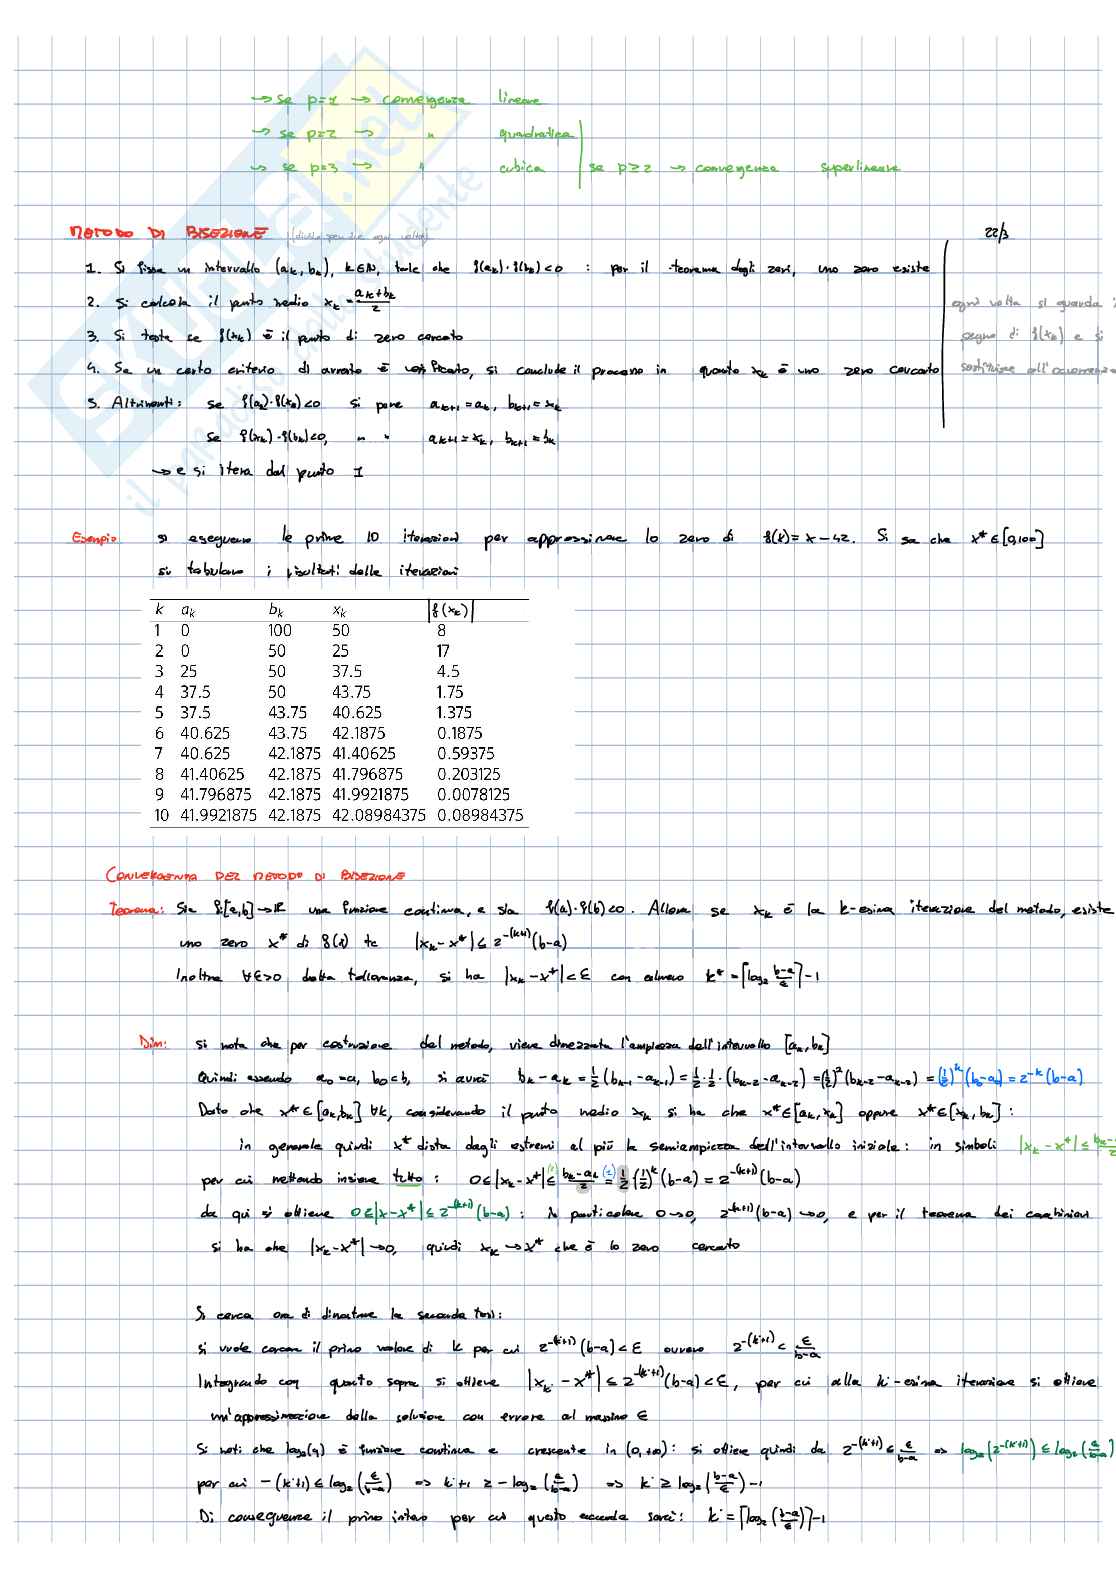 → se p=1 → convergenza lineare
→ se p=2 → " quadratica
→ se p=3 → " cubica | se p≥2 → convergenza superlineare
METODO DI BISEZIONE (divisione per due ogni volta)
22/3
1. Si fissa un intervallo (aₖ, bₖ), k∈ℕ, tale che f(aₖ)·f(bₖ)<0 : per il teorema degli zeri, uno zero esiste
2. Si calcola il punto medio xₖ = (aₖ+bₖ)/2
3. Si testa se f(xₖ) è il punto di zero cercato
4. Se un certo criterio di arresto è verificato, si conclude il processo in quanto xₖ è uno zero cercato
ogni volta si guarda il
segno di f(xₖ) e si
sostituisce all'occorrenza
5. Altrimenti: se f(aₖ)·f(xₖ)<0 si pone aₖ₊₁=aₖ, bₖ₊₁=xₖ
se f(xₖ)·f(bₖ)<0, " " aₖ₊₁=xₖ, bₖ₊₁=bₖ
→ e si itera dal punto 1
Esempio si eseguano le prime 10 iterazioni per approssimare lo zero di f(x)=x-42. Si sa che x*∈[0,100]
si tabulano i risultati delle iterazioni
k aₖ bₖ xₖ |f(xₖ)|
1 0 100 50 8
2 0 50 25 17
3 25 50 37.5 4.5
4 37.5 50 43.75 1.75
5 37.5 43.75 40.625 1.375
6 40.625 43.75 42.1875 0.1875
7 40.625 42.1875 41.40625 0.59375
8 41.40625 42.1875 41.796875 0.203125
9 41.796875 42.1875 41.9921875 0.0078125
10 41.9921875 42.1875 42.08984375 0.08984375
CONVERGENZA DEL METODO DI BISEZIONE
Teorema: Sia f:[a,b]→ℝ una funzione continua, e sia f(a)·f(b)<0. Allora se xₖ è la k-esima iterazione del metodo, esiste
uno zero x* di f(x) tc |xₖ-x*| ≤ 2^-(k+1)(b-a)
Inoltre ∀ε>0 detta tolleranza, si ha |xₖ-x*|<ε con almeno k* = ⌈log₂ (b-a)/ε⌉-1
Dim: si nota che per costruzione del metodo, viene dimezzata l'ampiezza dell'intervallo [aₖ, bₖ]
Quindi essendo a₀=a, b₀=b, si avrà bₖ-aₖ = 1/2(bₖ₋₁-aₖ₋₁) = 1/2·1/2·(bₖ₋₂-aₖ₋₂) = (1/2)²(bₖ₋₂-aₖ₋₂) = (1/2)^k(b₀-a₀) = 2^-k(b-a)
Dato che x*∈[aₖ,bₖ] ∀k, considerando il punto medio xₖ si ha che x*∈[aₖ,xₖ] oppure x*∈[xₖ,bₖ] :
in generale quindi x* dista dagli estremi al più la semiampiezza dell'intervallo iniziale: in simboli |xₖ-x*| ≤ (bₖ-
per cui mettendo insieme tutto : 0≤|xₖ-x*| ≤⁽¹⁾ (bₖ-aₖ)/2 =⁽²⁾ 1/2 (1/2)^k (b-a) = 2^-(k+1)(b-a)
da qui si ottiene 0≤|x-x*| ≤ 2^-(k+1)(b-a) : in particolare 0→0, 2^-(k+1)(b-a)→0, e per il teorema dei carabinieri
si ha che |xₖ-x*|→0, quindi xₖ→x* che è lo zero cercato
Si cerca ora di dimostrare la seconda tesi:
si vuole cercare il primo valore di k per cui 2^-(k+1)(b-a)<ε ovvero 2^-(k+1) < ε/(b-a)
Integrando con quanto sopra si ottiene |xₖ-x*| ≤ 2^-(k+1)(b-a)<ε, per cui alla k-esima iterazione si ottiene
un'approssimazione della soluzione con errore al massimo ε
Si noti che log₂(y) è funzione continua e crescente in (0,+∞): si ottiene quindi da 2^-(k+1) ≤ ε/(b-a) ⇒ log₂(2^-(k+1)) ≤ log₂(ε/(b-a))
per cui -(k+1) ≤ log₂(ε/(b-a)) ⇒ k+1 ≥ -log₂(ε/(b-a)) ⇒ k ≥ log₂((b-a)/ε)-1
Di conseguenza il primo intero per cui questo accada sarà: k = ⌈log₂((b-a)/ε)⌉-1